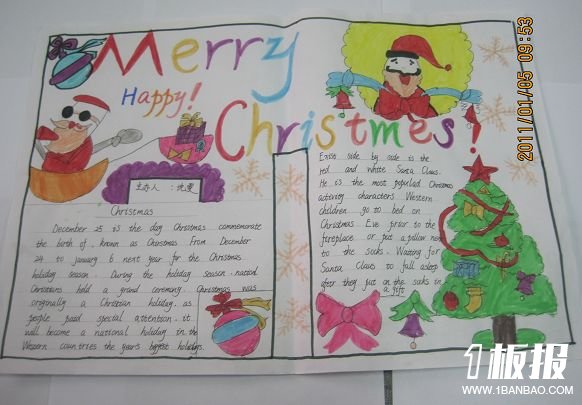 Merry
Happy!
Christmes!
2011/01/05 09:53
主办人：
Christmas
December 25 is the day Christmas commemorate
the birth of, known as Christmas From December
24 to January 6 next year for the Christmas
holiday season. During the holiday season, nationl
Christians hold a grand ceremony. Christmas was
originally a Christian holiday, as
people paid special attention, it
will become a national holiday in the
Western countries the year's biggest holidays.
side by side is the
red and white Santa Claus.
He is the most populed Christmas
activity characters Western
children go to bed on
Christmas Eve prior to the
fireplace or put a pillow next
to the socks. Waiting for
Santa Claus to full asleep
after they put on the socks in
a gift
1板报
WWW.1BANBAO.COM